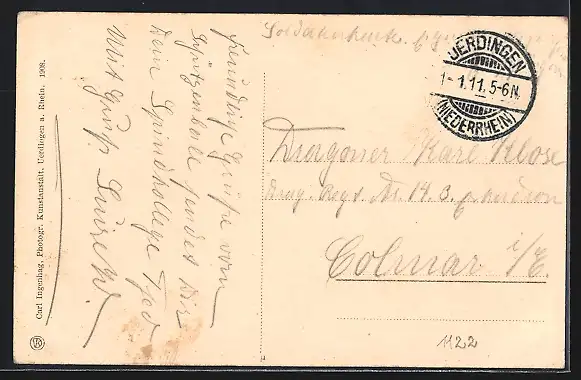 Carl Ingenhag, Photogr. Kunstanstalt, Uerdingen a. Rhein. 1908.
freundliche Grüße vom
Schützenball sendet Dir
Dein
Mit Gruß. Luize W.
Soldatenkarte.
UERDINGEN
1.1.11.5-6N.
(NIEDERRHEIN)
Dragoner Karl Klose
Drag. Regt. Nr. 14. 3. Eskadron
Colmar i/E.
1122